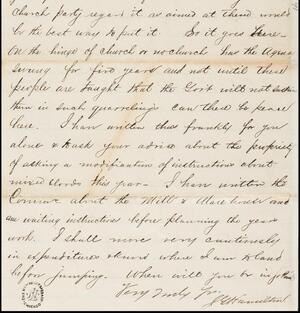 church party regard it as aimed at them would
be the best way to put it. So it goes here-
On the hinge of church or no church has the Agency
swung for five years and not until these
people are taught that the Govt will not sustain
them in such quarreling can there be peace
here. I have written thus frankly for you
alone & to ask your advice about the propriety
of asking a modification of instructions about
mixed bloods this year - I have written the
Commr about the Mill & Ware house and
am waiting instructions before planning the years
work. I shall move very cautiously
in expenditures & learn where I am to land
before jumping. When will you be in
Very truly Yr.
Hamilton